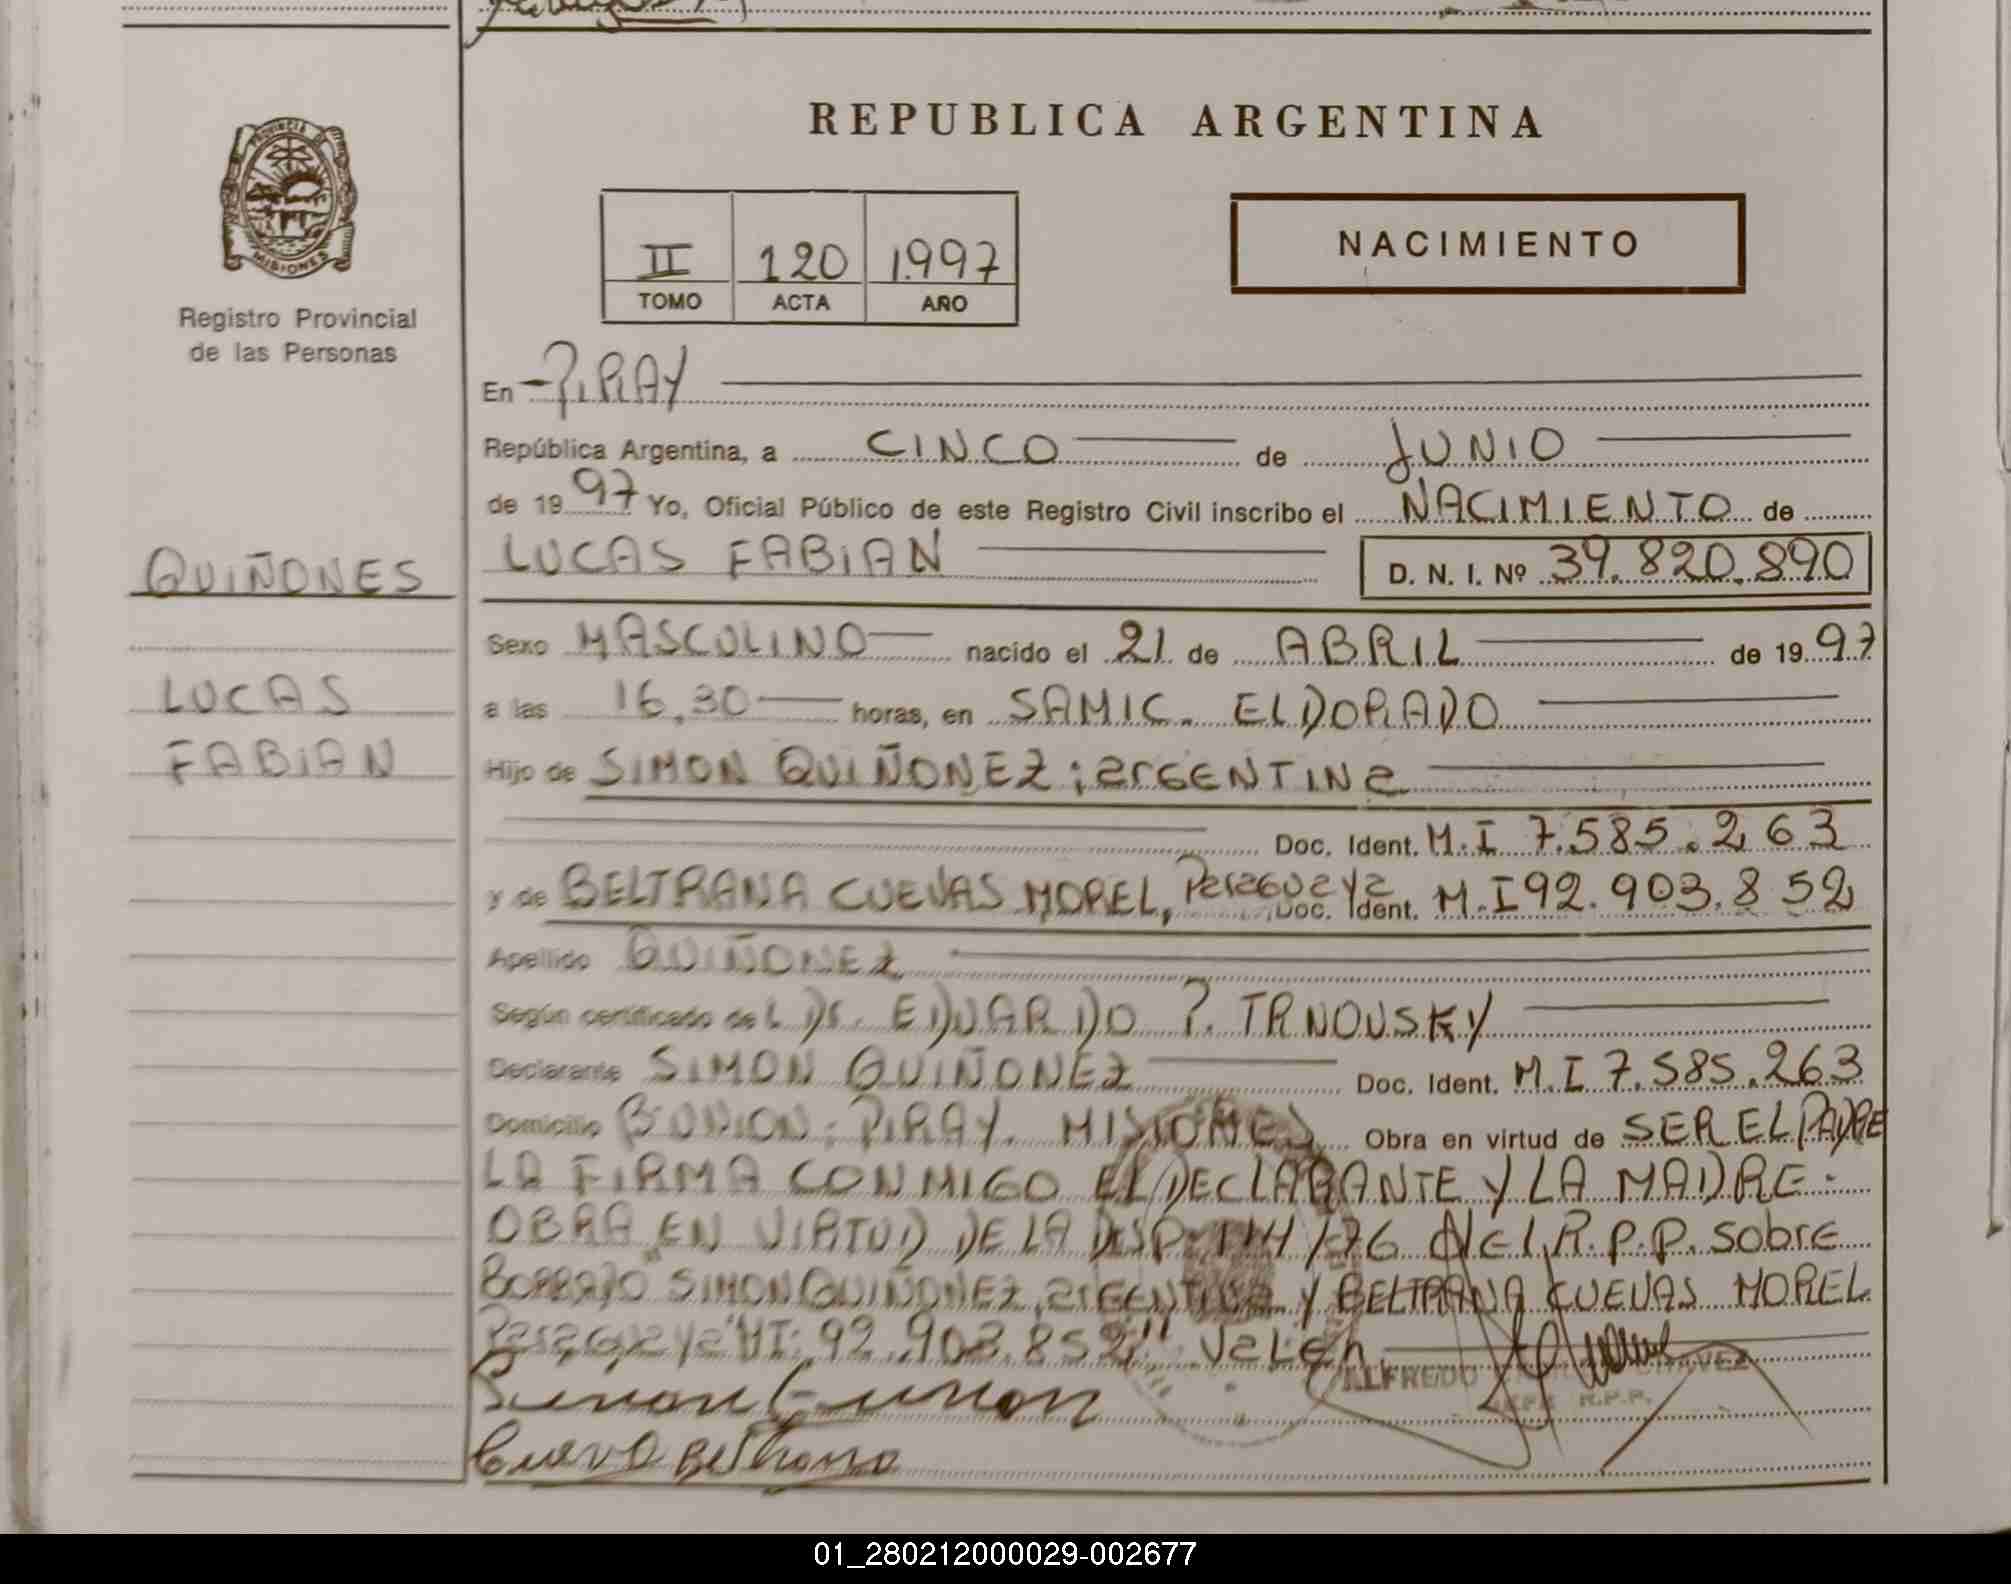 REPUBLICA ARGENTINA
PROVINCIA DE
MISIONES
Registro Provincial
de las Personas
II 120 1997
TOMO ACTA AÑO
NACIMIENTO
En PIRAY
República Argentina, a CINCO de JUNIO
de 1997 Yo, Oficial Público de este Registro Civil inscribo el NACIMIENTO de
QUIÑONES
LUCAS FABIAN D. N. I. Nº 39.820.890
Sexo MASCULINO nacido el 21 de ABRIL de 1997
LUCAS
a las 16,30 horas, en SAMIC. ELDORADO
FABIAN
Hijo de SIMON QUIÑONEZ; argENTINa
Doc. Ident. M.I 7.585.263
y de BELTRANA CUEVAS MOREL, Paraguaya Doc. Ident. M.I 92.903.852
Apellido QUIÑONEZ
Según certificado del Dr. EDUARDO P. TRNOVSKY
Declarante SIMON QUIÑONEZ Doc. Ident. M.I 7.585.263
Domicilio Bº UNION; PIRAY. MISIONES Obra en virtud de SER EL PADRE
LA FIRMA CONMIGO EL DECLARANTE Y LA MADRE.
OBRA EN VIRTUD DE LA DISP. /76 del R.P.P. sobre
BORRADO "SIMON QUIÑONEZ, argentina Y BELTRANA CUEVAS MOREL
Paraguaya MI: 92.903.852" Valen
ALFREDO CHAVEZ
R.P.P.
01_280212000029-002677